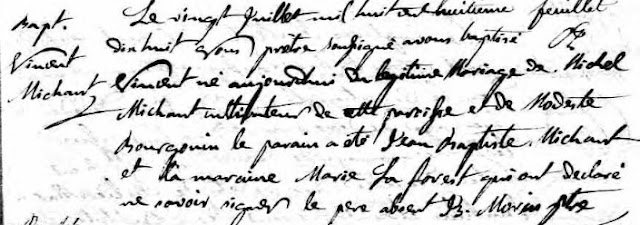 Bapt.
Vincent
Michaut
Le vingt Juillet mil huit cent huitieme feuillet
dix huit nous prêtre soussigné avons baptisé
Vincent né aujourdhui du légitime Mariage de Michel
Michaut cultivateur de cette paroisse et de Modeste
Bourgouin le parain a été Jean Baptiste Michaut
et la maraine Marie La forest qui ont declaré
ne savoir signer le pere absent Morin ptre